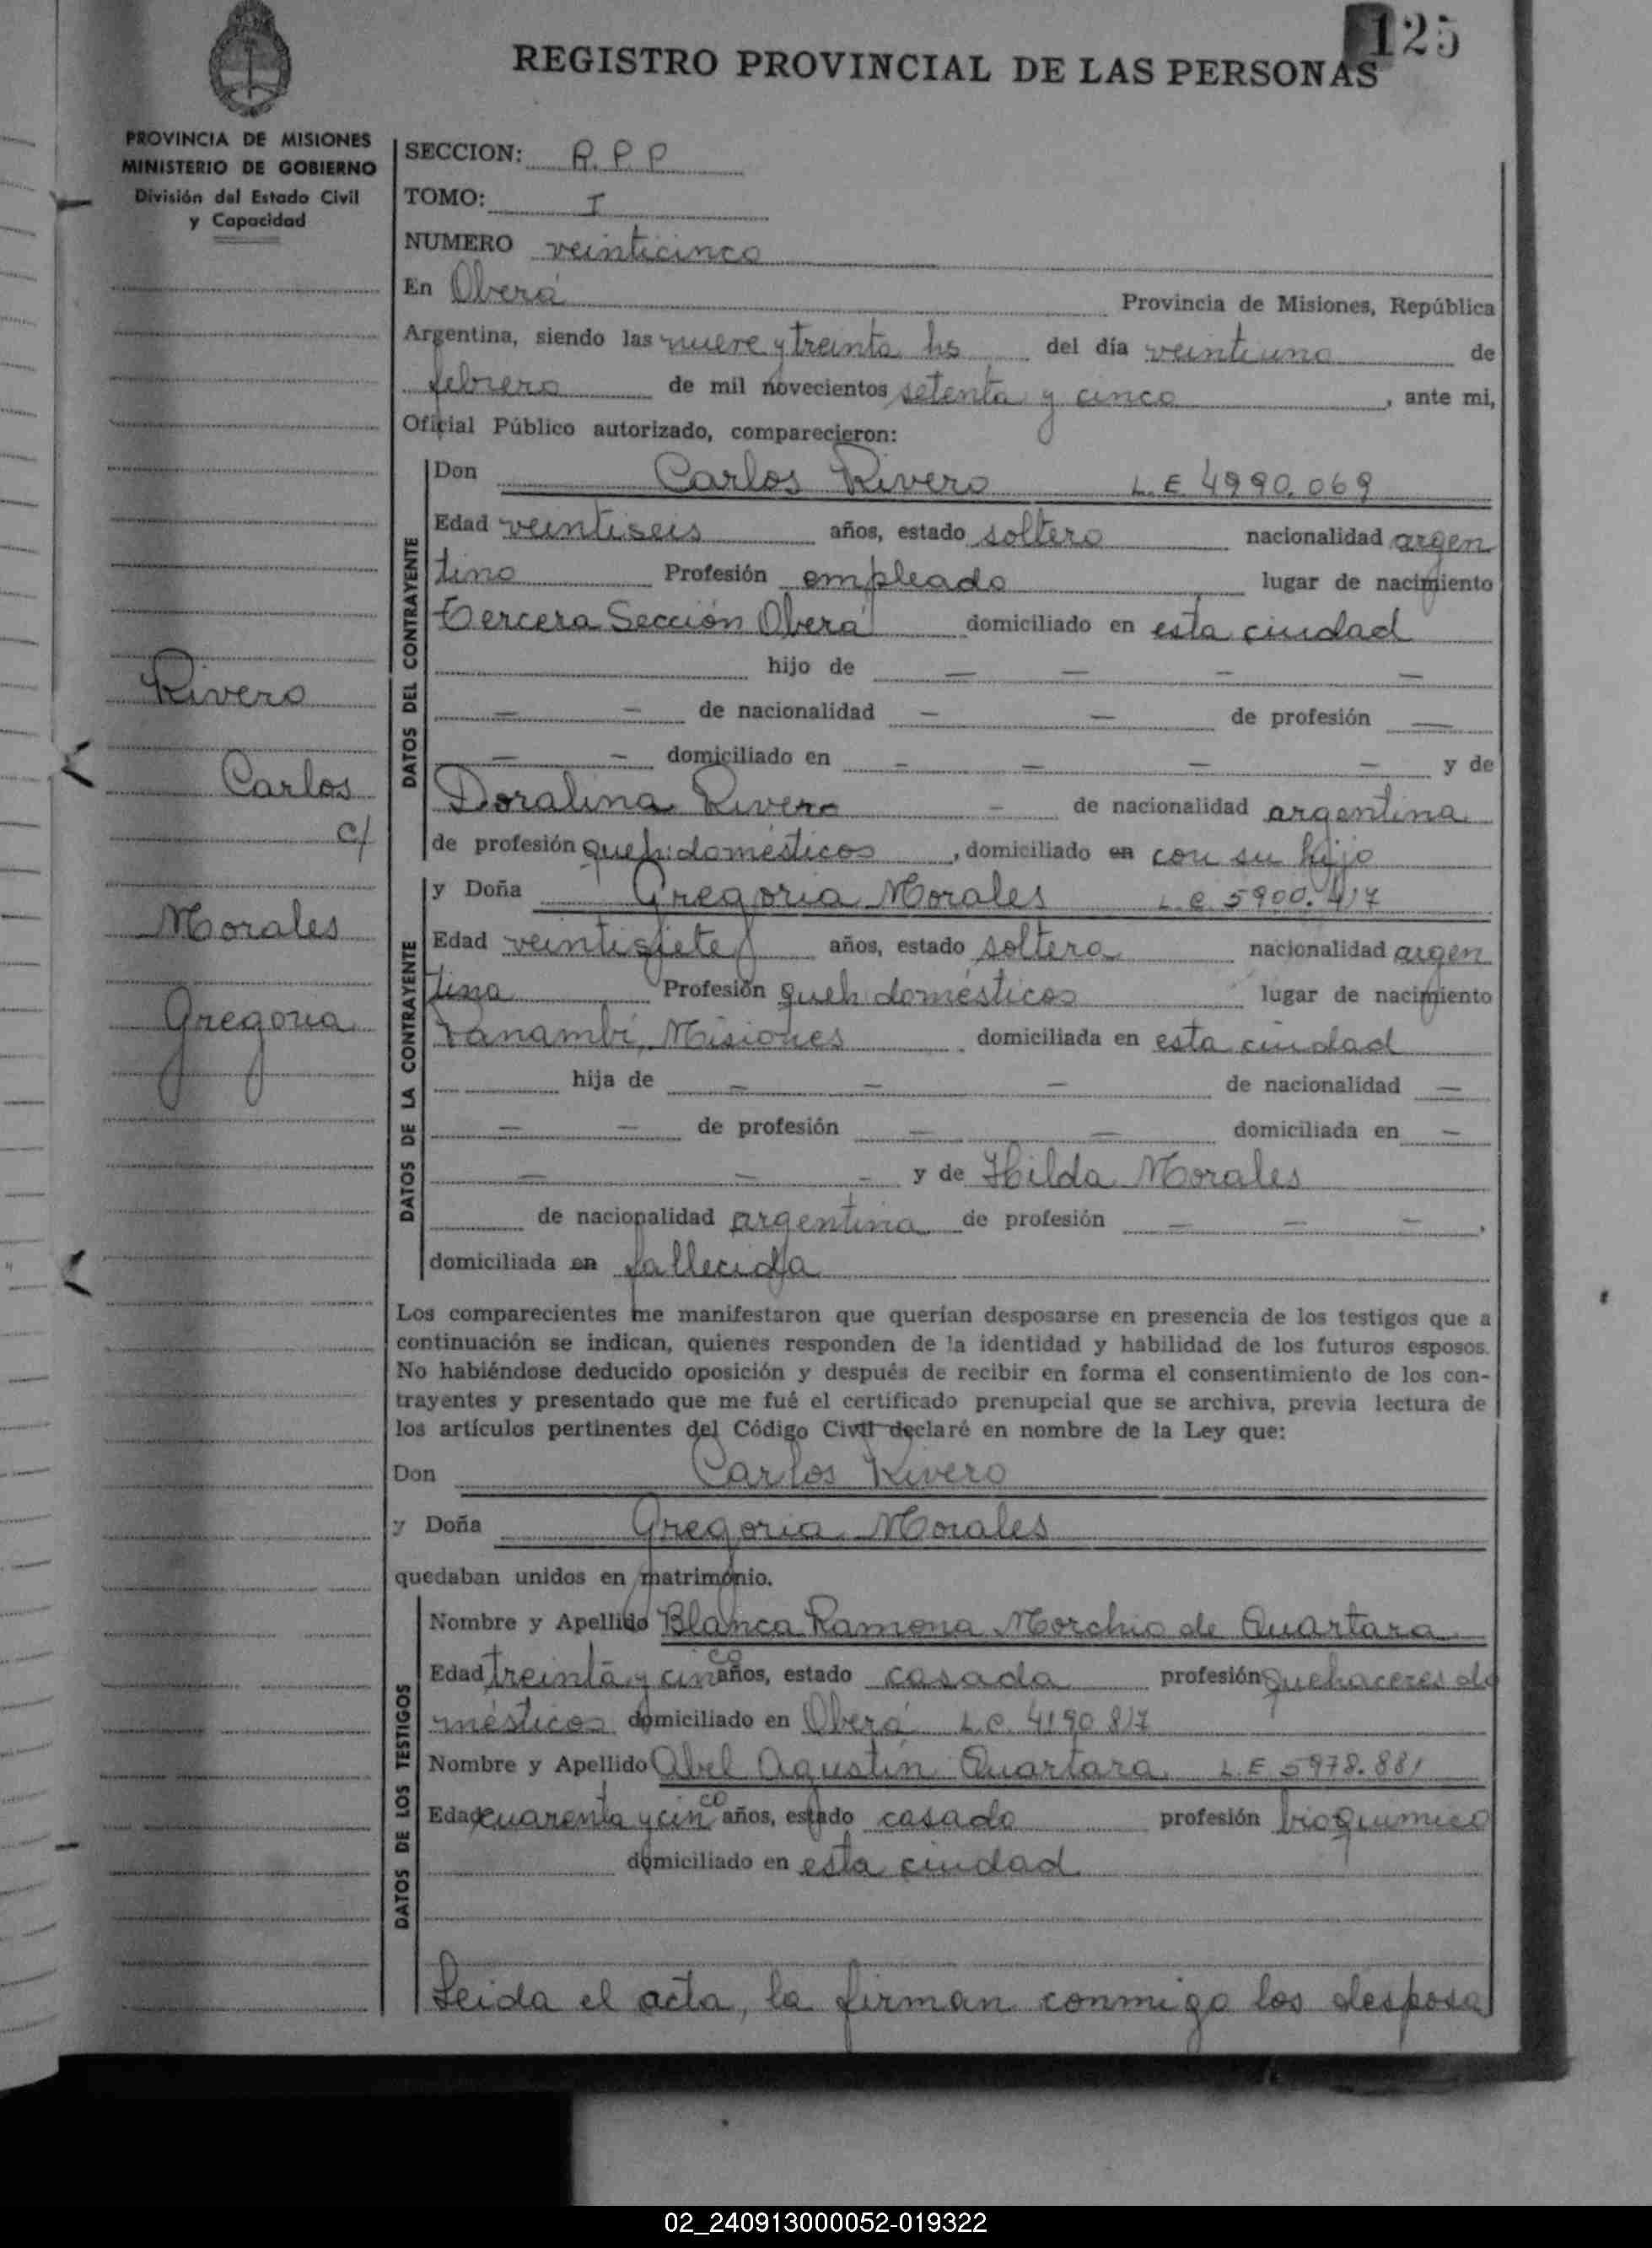 125
REGISTRO PROVINCIAL DE LAS PERSONAS
PROVINCIA DE MISIONES
MINISTERIO DE GOBIERNO
División del Estado Civil
y Capacidad
Rivero
Carlos
c/
Morales
Gregoria
SECCION: R.P.P
TOMO: I
NUMERO veinticinco
En Oberá Provincia de Misiones, República
Argentina, siendo las nueve y treinta hs del día veintiuno de
febrero de mil novecientos setenta y cinco, ante mi,
Oficial Público autorizado, comparecieron:
DATOS DEL CONTRAYENTE
Don Carlos Rivero L.E 4990.069
Edad veintiseis años, estado soltero nacionalidad argen
tino Profesión empleado lugar de nacimiento
Tercera Sección Oberá domiciliado en esta ciudad
hijo de — — — —
— — de nacionalidad — — de profesión —
— — domiciliado en — — — — y de
Doralina Rivero — de nacionalidad argentina
de profesión queh. domésticos, domiciliado en con su hijo
DATOS DE LA CONTRAYENTE
y Doña Gregoria Morales L.C. 5900.417
Edad veintisiete años, estado soltera nacionalidad argen
tina Profesión queh domésticos lugar de nacimiento
Panambí, Misiones domiciliada en esta ciudad
hija de — — — de nacionalidad —
— — de profesión — — domiciliada en —
— — — y de Hilda Morales
de nacionalidad argentina de profesión — — —,
domiciliada en fallecida
Los comparecientes me manifestaron que querían desposarse en presencia de los testigos que a
continuación se indican, quienes responden de la identidad y habilidad de los futuros esposos.
No habiéndose deducido oposición y después de recibir en forma el consentimiento de los con-
trayentes y presentado que me fué el certificado prenupcial que se archiva, previa lectura de
los artículos pertinentes del Código Civil declaré en nombre de la Ley que:
Don Carlos Rivero
y Doña Gregoria Morales
quedaban unidos en matrimonio.
DATOS DE LOS TESTIGOS
Nombre y Apellido Blanca Ramona Morchio de Quartara
Edad treinta y cinco años, estado casada profesión quehaceres do
mésticos domiciliado en Oberá L.C. 4190.817
Nombre y Apellido Abel Agustín Quartara L.E 5978.881
Edad cuarenta y cinco años, estado casado profesión bioquimico
domiciliado en esta ciudad
Leida el acta, la firman conmigo los desposa
02_240913000052-019322